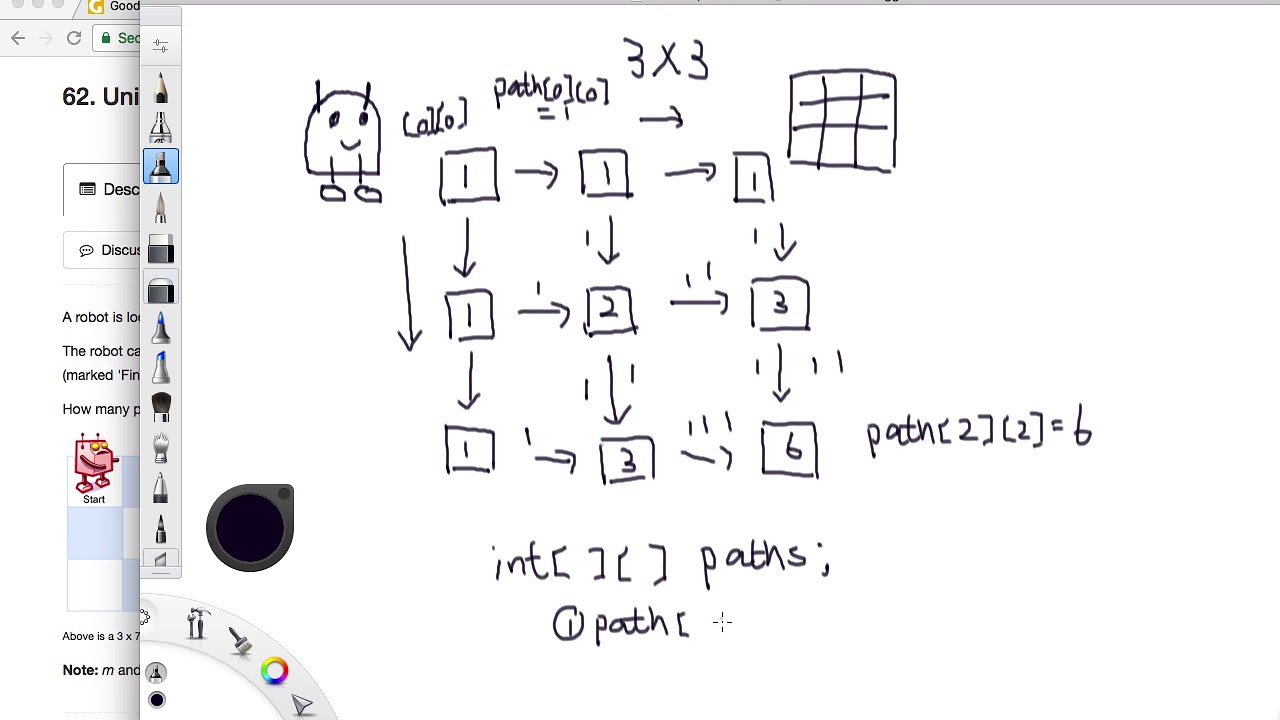 Good
Sec
62. Uni
Desc
Discus
A robot is loc
The robot ca
(marked 'Fin
How many p
Start
Above is a 3 x 7
Note: m and
3 X 3
path[0][0]
= 1
[0][0]
1 1 1
1 1
1 1 1
1 2 3
1 1 1 1 1
1 1 1 1
1 3 6
path[2][2]=6
int[ ][ ] paths;
① path[